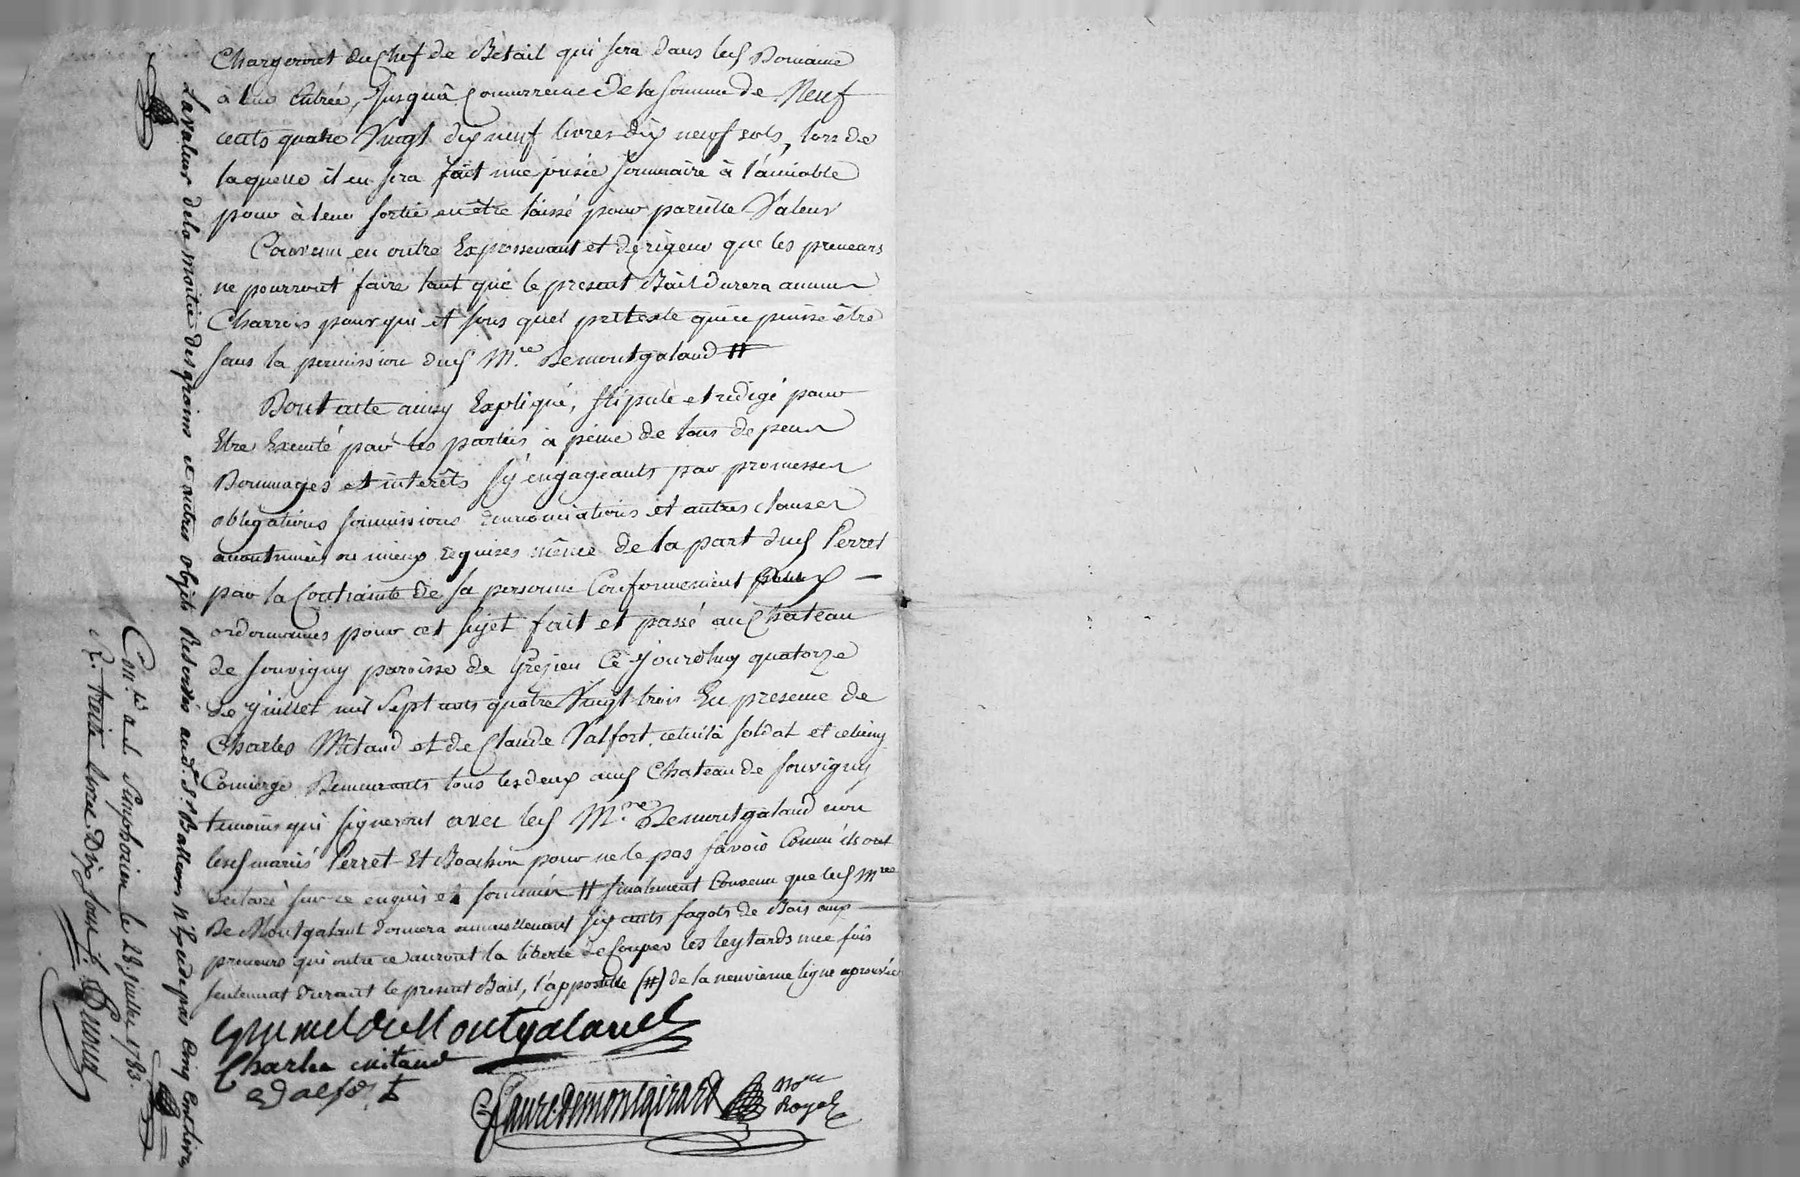 Chargeront du Chef de Betail qui sera dans led Domaine
a leur Entrée, Jusqu'à Concurrence de la somme de Neuf
cents quatre Vingt dix neuf livres dix neuf sols, lors de
laquelle il en sera fait une prisée sommaire à l'amiable
pour à leur sortie en être laissé pour pareille Valeur
Convenu en outre Expressement et de rigeur que les preneurs
ne pourront faire tant que le present Bail durera aucuns
Charrois pour qui et sous quel pretexte que ce puisse être
sans la permission dud Mre Demontgaland #
Dont acte ainsy Expliqué, stipulé et redigé pour
Etre Executé par les parties à peine de tous depens
Dommages et intérêts s'y engageants par promesses
obligations soumissions renonciations et autres clauses
accoutumées ou mieux requises même de la part dud Perret
par la Contrainte de sa personne Conformement aux
ordonnances pour cet sujet fait et passé au Chateau
de souvigny paroisse de Grésieu Ce Jourdhuy quatorze
de Juillet mil Sept cents quatre Vingt trois En presence de
Charles Mitaud et de Claude Valfort, celui là soldat et celuicy
Concierge Demeurants tous les deux aud Chateau de souvigny
temoins qui signeront avec led Mre Demontgaland non
lesd mariés Perret Et Bouchon pour ne le pas savoir Comme ils ont
declaré sur ce enquis et sommés # finalement Convenu que led Mre
De Montgaland donnera annuellement six cents fagots de Bois aux
preneurs qui outre ce auront la liberté de Couper les leytards une fois
seulement durant le present Bail, l'appostille (#) de la neuvieme ligne aprouvée
Grimod de Montgaland
Charles mitaud
C Valfort
Faure de montgirard Nre
Royal
La valeur de la moitié des grains et autres objets Reservés aud. S. Bailleur, n'Excede pas Cinq Cent livres
Con.lé a St. Simphorien le 28 juillet 1783.
R. trente livres Dix sous